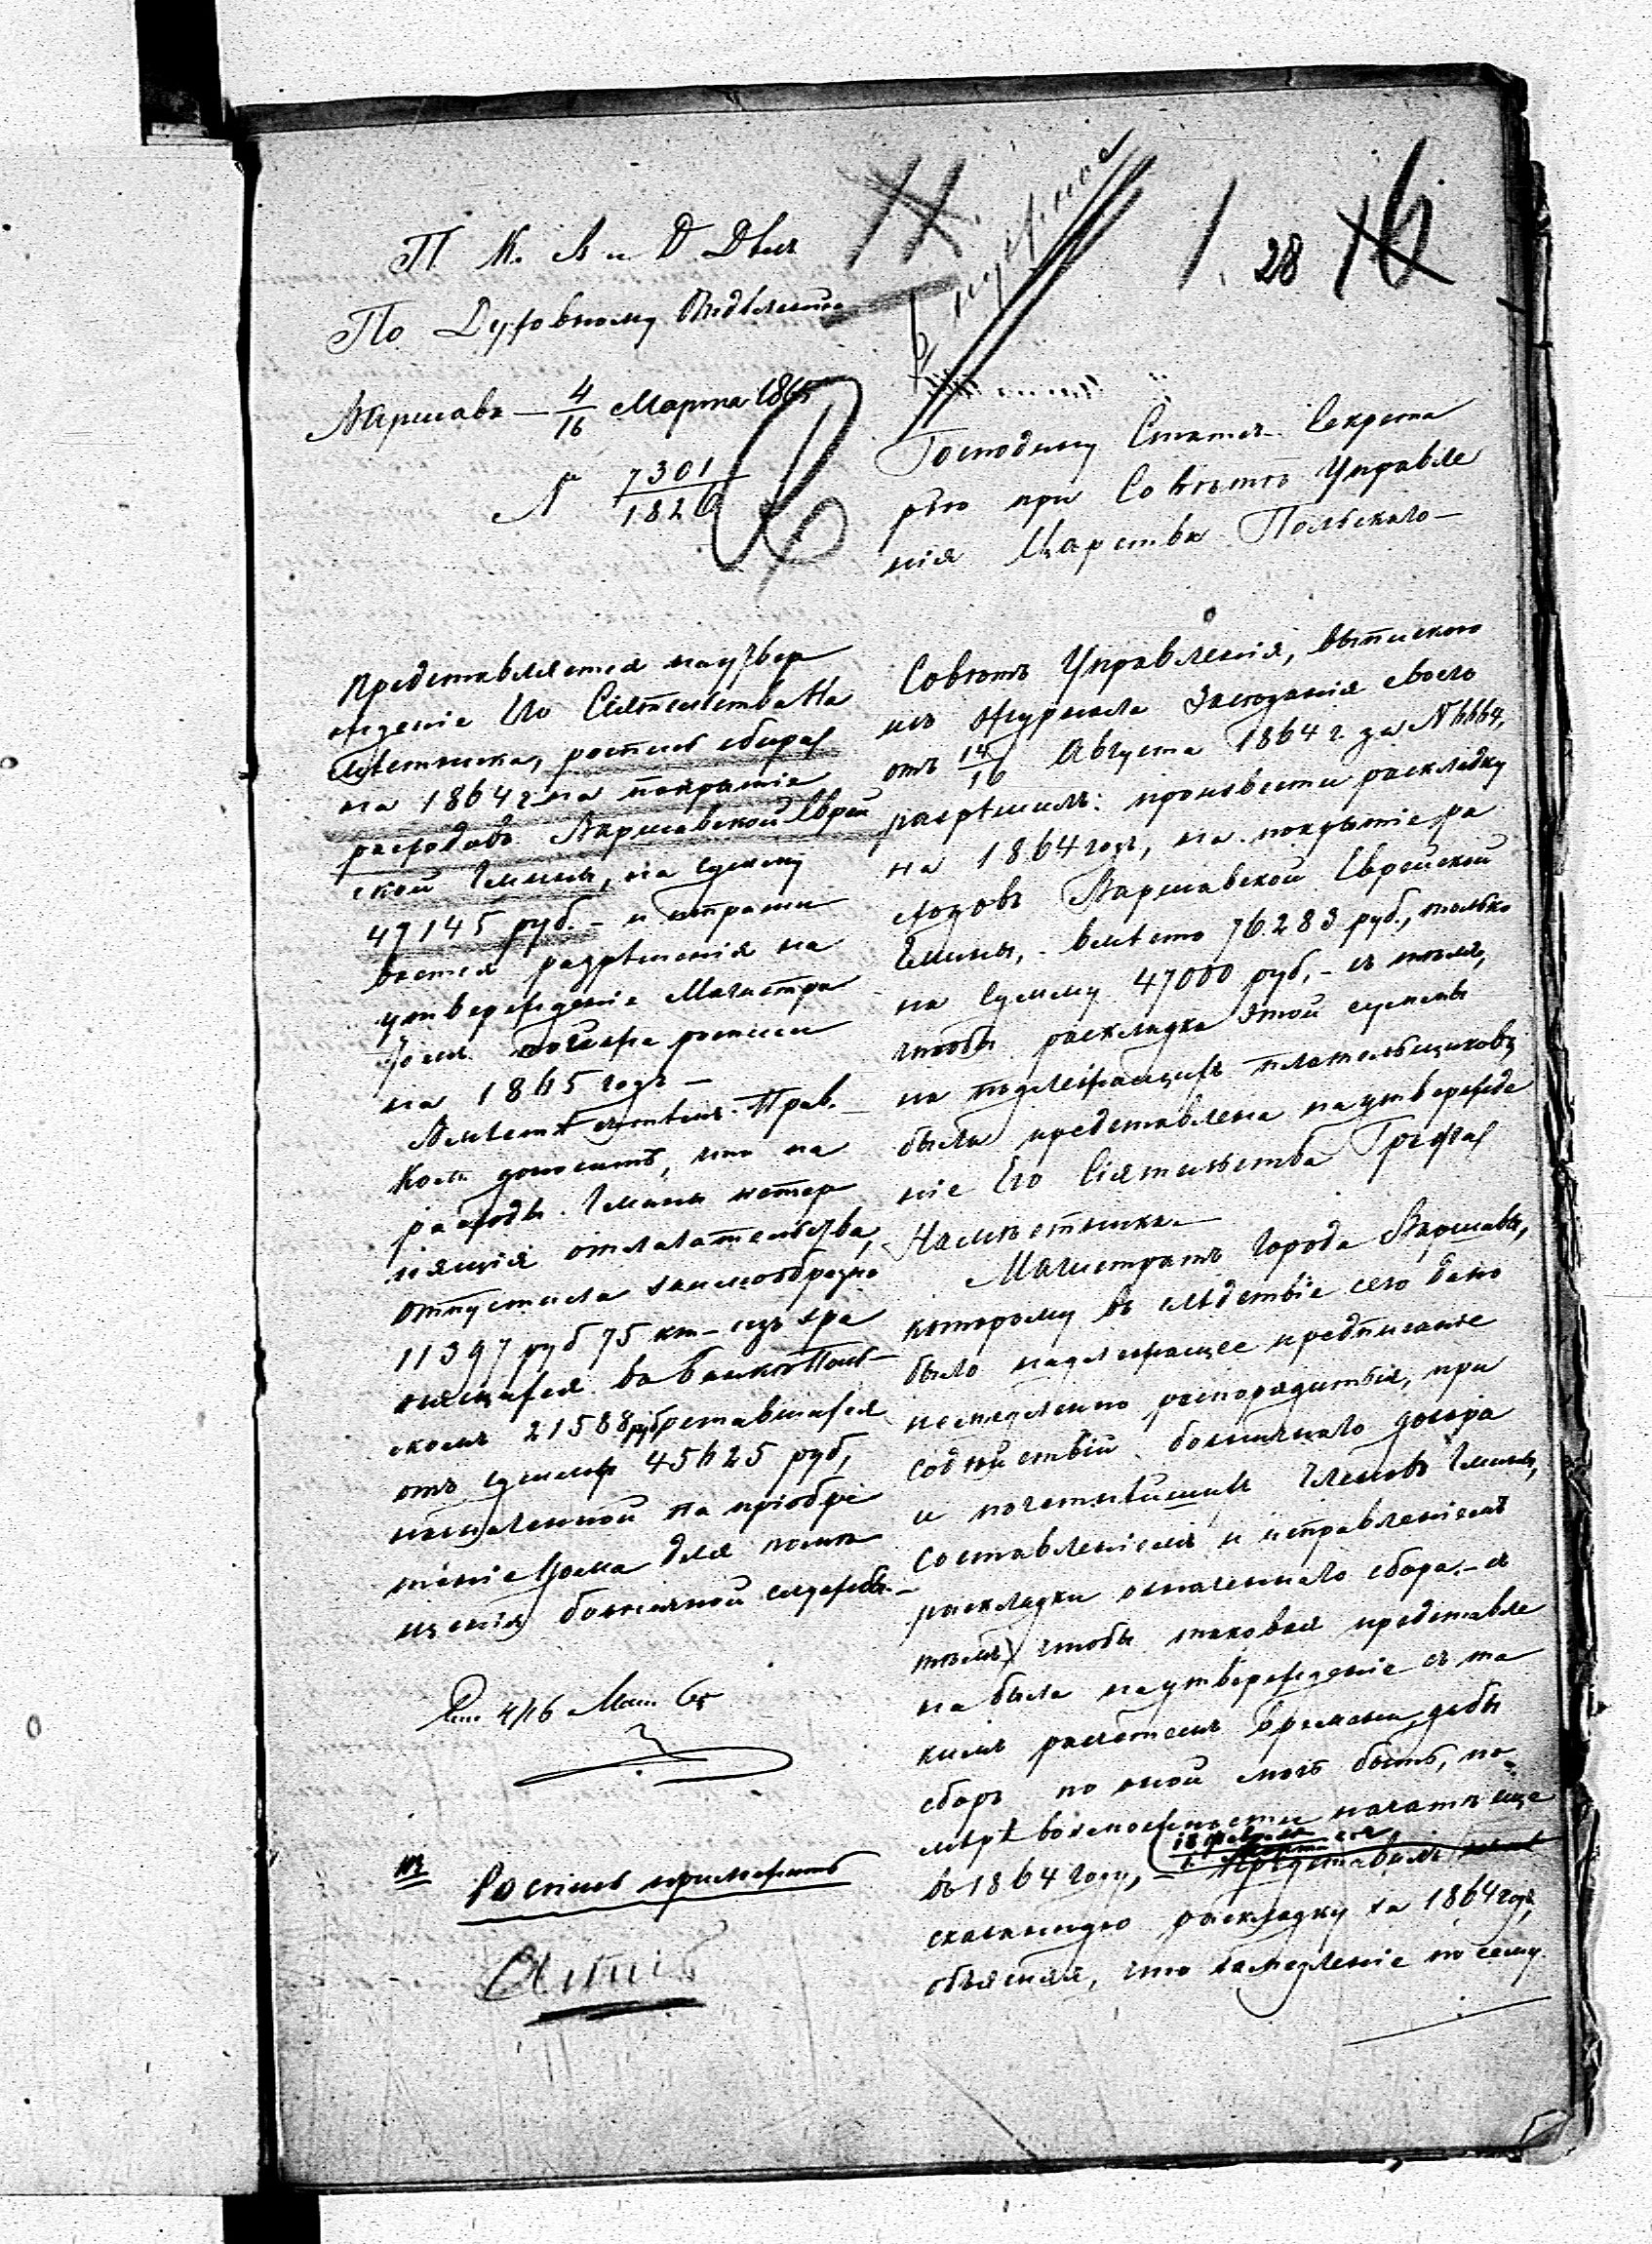 П. К. В. и Д. Дѣлъ
По Духовному Отдѣленію
Варшава — 4/16 Марта 1865
№ 7301/1826
1. 28 16
Господину Статсъ-Секрета
рю при Совѣтѣ Управле
нія Царства Польскаго —
Представляется на утвер
жденіе Его Сіятельства На
мѣстника, роспись сбора
на 1864 г. на покрытіе
расходовъ Варшавской Еврей
ской Гмины, на сумму
47145 руб. — и испраши
вается разрѣшенія на
утвержденіе Магистра
томъ таковой же росписи
на 1865 годъ —
Вмѣстѣ съ тѣмъ Прав.
Ком. доноситъ, что на
расходы Гмины
отпустила заимообразно
11397 руб 75 к. — изъ хра
нящихся въ Банкѣ Поль
скомъ 21588 руб оставшихся
отъ суммы 45625 руб,
назначенной на пріобрѣ
теніе дома для помѣ
щенія больничной
4/16 Мар. 65
Роспись приложить
Совѣтъ Управленія, выпискою
изъ журнала Засѣданія своего
отъ 14/16 Августа 1864 г. за № 6669,
разрѣшилъ: произвести раскладку
на 1864 годъ, на покрытіе ра
сходовъ Варшавской Еврейской
Гмины, — вмѣсто 76.283 руб., только
на сумму 47000 руб, — съ тѣмъ,
чтобы раскладка этой суммы
на подлежащихъ плательщиковъ,
была представлена на утвержде
ніе Его Сіятельства Графа
Намѣстника —
Магистратъ города Варшавы,
которому въ слѣдствіе сего дано
было надлежащее предписаніе
немедленно распорядиться, при
содѣйствіи Божничнаго дозора
и почетнѣйшихъ членовъ Гмины,
составленіемъ и исправленіемъ
раскладки означеннаго сбора, — съ
тѣмъ, чтобы таковая представле
на была на утвержденіе съ та
кимъ расчетомъ времени, дабы
сборъ по оной могъ быть, по
мѣрѣ возможности начатъ еще
въ 1864 году, — представилъ
сказанную раскладку за 1864 годъ,
объясняя, что замедленіе по сему